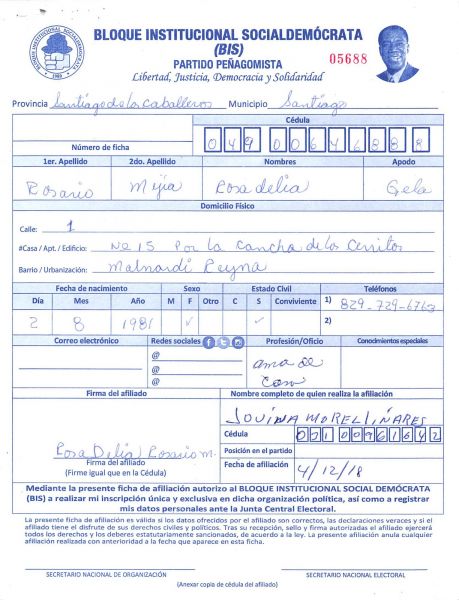 BLOQUE INSTITUCIONAL SOCIALDEMÓCRATA
(BIS)
05688
PARTIDO PEÑAGOMISTA
Libertad, Justicia, Democracia y Solidaridad
Provincia Santiago de los Caballeros Municipio Santiago
Cédula
Número de ficha 049 0064688 8
1er. Apellido 2do. Apellido Nombres Apodo
Rosario Mijia Rosa delia Gela
Domicilio Físico
Calle: 1
#Casa / Apt. / Edificio: No 15 Por la Cancha de los Cerritos
Barrio / Urbanización: Reyna
Fecha de nacimiento Sexo Estado Civil Teléfonos
Día Mes Año M F Otro C S Conviviente 1) 829-729-6763
2 8 1981 ✓ ✓ 2)
Correo electrónico Redes sociales Profesión/Oficio Conocimientos especiales
@ ama de
@ casa
@
Firma del afiliado Nombre completo de quien realiza la afiliación
JOVINA MOREL LIÑARES
Cédula 001 0096164 2
Rosa Delia Rosario m. Posición en el partido
Firma del afiliado Fecha de afiliación 4/12/18
(Firme igual que en la Cédula)
Mediante la presente ficha de afiliación autorizo al BLOQUE INSTITUCIONAL SOCIAL DEMÓCRATA
(BIS) a realizar mi inscripción única y exclusiva en dicha organización política, así como a registrar
mis datos personales ante la Junta Central Electoral.
La presente ficha de afiliación es válida si los datos ofrecidos por el afiliado son correctos, las declaraciones veraces y si el
afiliado tiene el disfrute de sus derechos civiles y políticos. Tras su recepción, sello y firma autorizadas el afiliado ejercerá
todos los derechos y los deberes estatutariamente sancionados, de acuerdo a la ley. La presente afiliación anula cualquier
afiliación realizada con anterioridad a la fecha que aparece en esta ficha.
SECRETARIO NACIONAL DE ORGANIZACIÓN SECRETARIO NACIONAL ELECTORAL
(Anexar copia de cédula del afiliado)